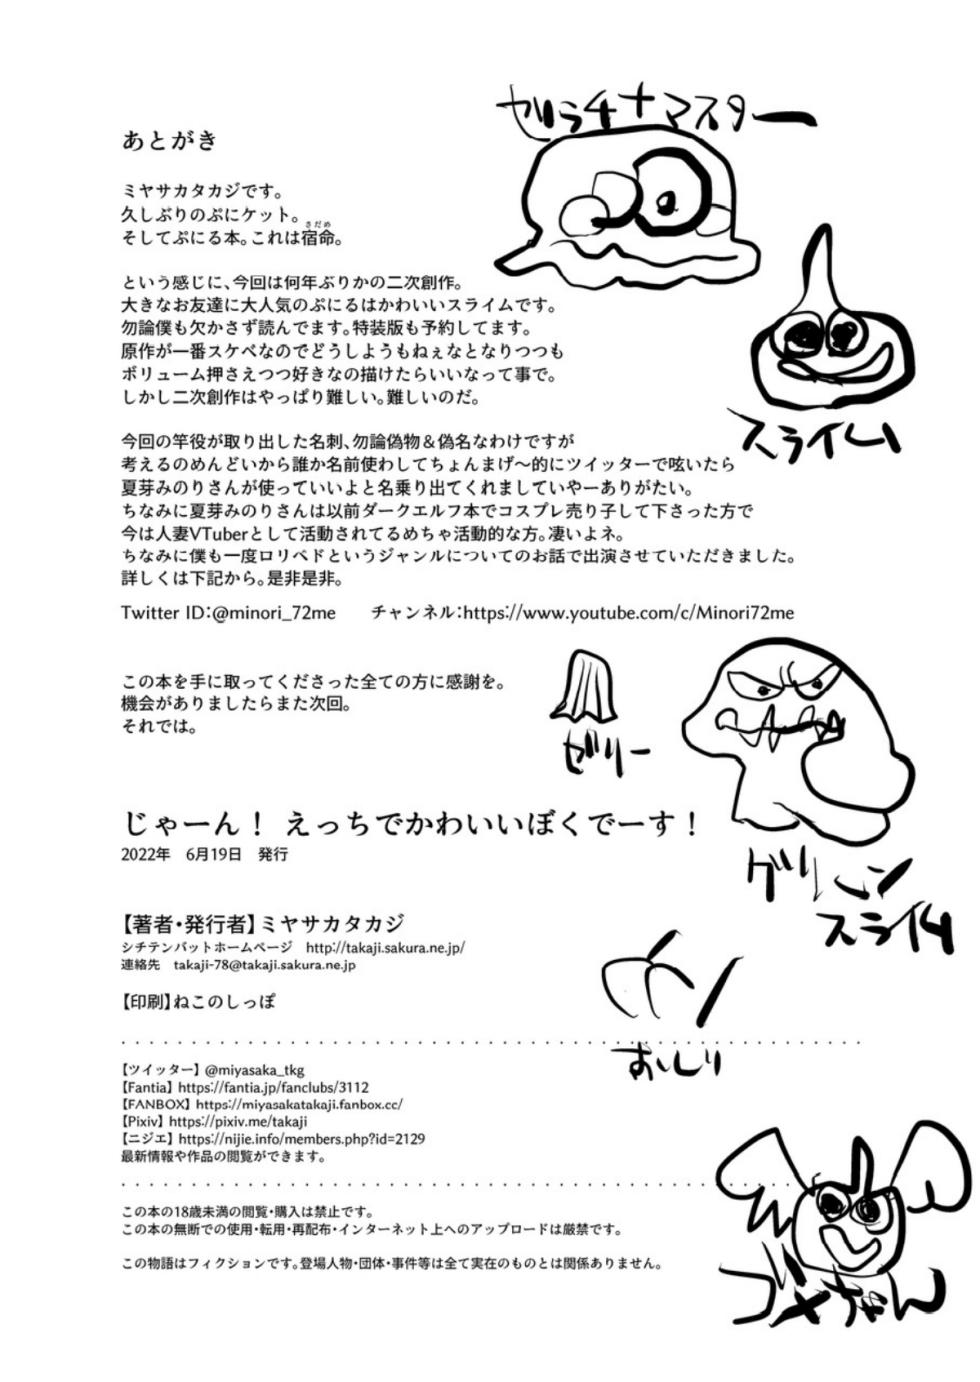 あとがき
ゼラチナマスター
ミヤサカタカジです。
久しぶりのぷにケット。
そしてぷにる本。これは宿命。
さだめ
という感じに、今回は何年ぶりかの二次創作。
大きなお友達に大人気のぷにるはかわいいスライムです。
勿論僕も欠かさず読んでます。特装版も予約してます。
原作が一番スケベなのでどうしようもねぇなとなりつつも
ボリューム押さえつつ好きなの描けたらいいなって事で。
しかし二次創作はやっぱり難しい。難しいのだ。
スライム
今回の竿役が取り出した名刺、勿論偽物&偽名なわけですが
考えるのめんどいから誰か名前使わしてちょんまげ〜的にツイッターで呟いたら
夏芽みのりさんが使っていいよと名乗り出てくれましていやーありがたい。
ちなみに夏芽みのりさんは以前ダークエルフ本でコスプレ売り子して下さった方で
今は人妻VTuberとして活動されてるめちゃ活動的な方。凄いよネ。
ちなみに僕も一度ロリペドというジャンルについてのお話で出演させていただきました。
詳しくは下記から。是非是非。
Twitter ID:@minori_72me　チャンネル:https://www.youtube.com/c/Minori72me
この本を手に取ってくださった全ての方に感謝を。
機会がありましたらまた次回。
それでは。
ゼリー
じゃーん！ えっちでかわいいぼくでーす！
2022年　6月19日　発行
グリーン
スライム
【著者・発行者】ミヤサカタカジ
シチテンバットホームページ　http://takaji.sakura.ne.jp/
連絡先　takaji-78@takaji.sakura.ne.jp
【印刷】ねこのしっぽ
おいしい
【ツイッター】@miyasaka_tkg
【Fantia】https://fantia.jp/fanclubs/3112
【FANBOX】https://miyasakatakaji.fanbox.cc/
【Pixiv】https://pixiv.me/takaji
【ニジエ】https://nijie.info/members.php?id=2129
最新情報や作品の閲覧ができます。
この本の18歳未満の閲覧・購入は禁止です。
この本の無断での使用・転用・再配布・インターネット上へのアップロードは厳禁です。
この物語はフィクションです。登場人物・団体・事件等は全て実在のものとは関係ありません。
ゴメちゃん